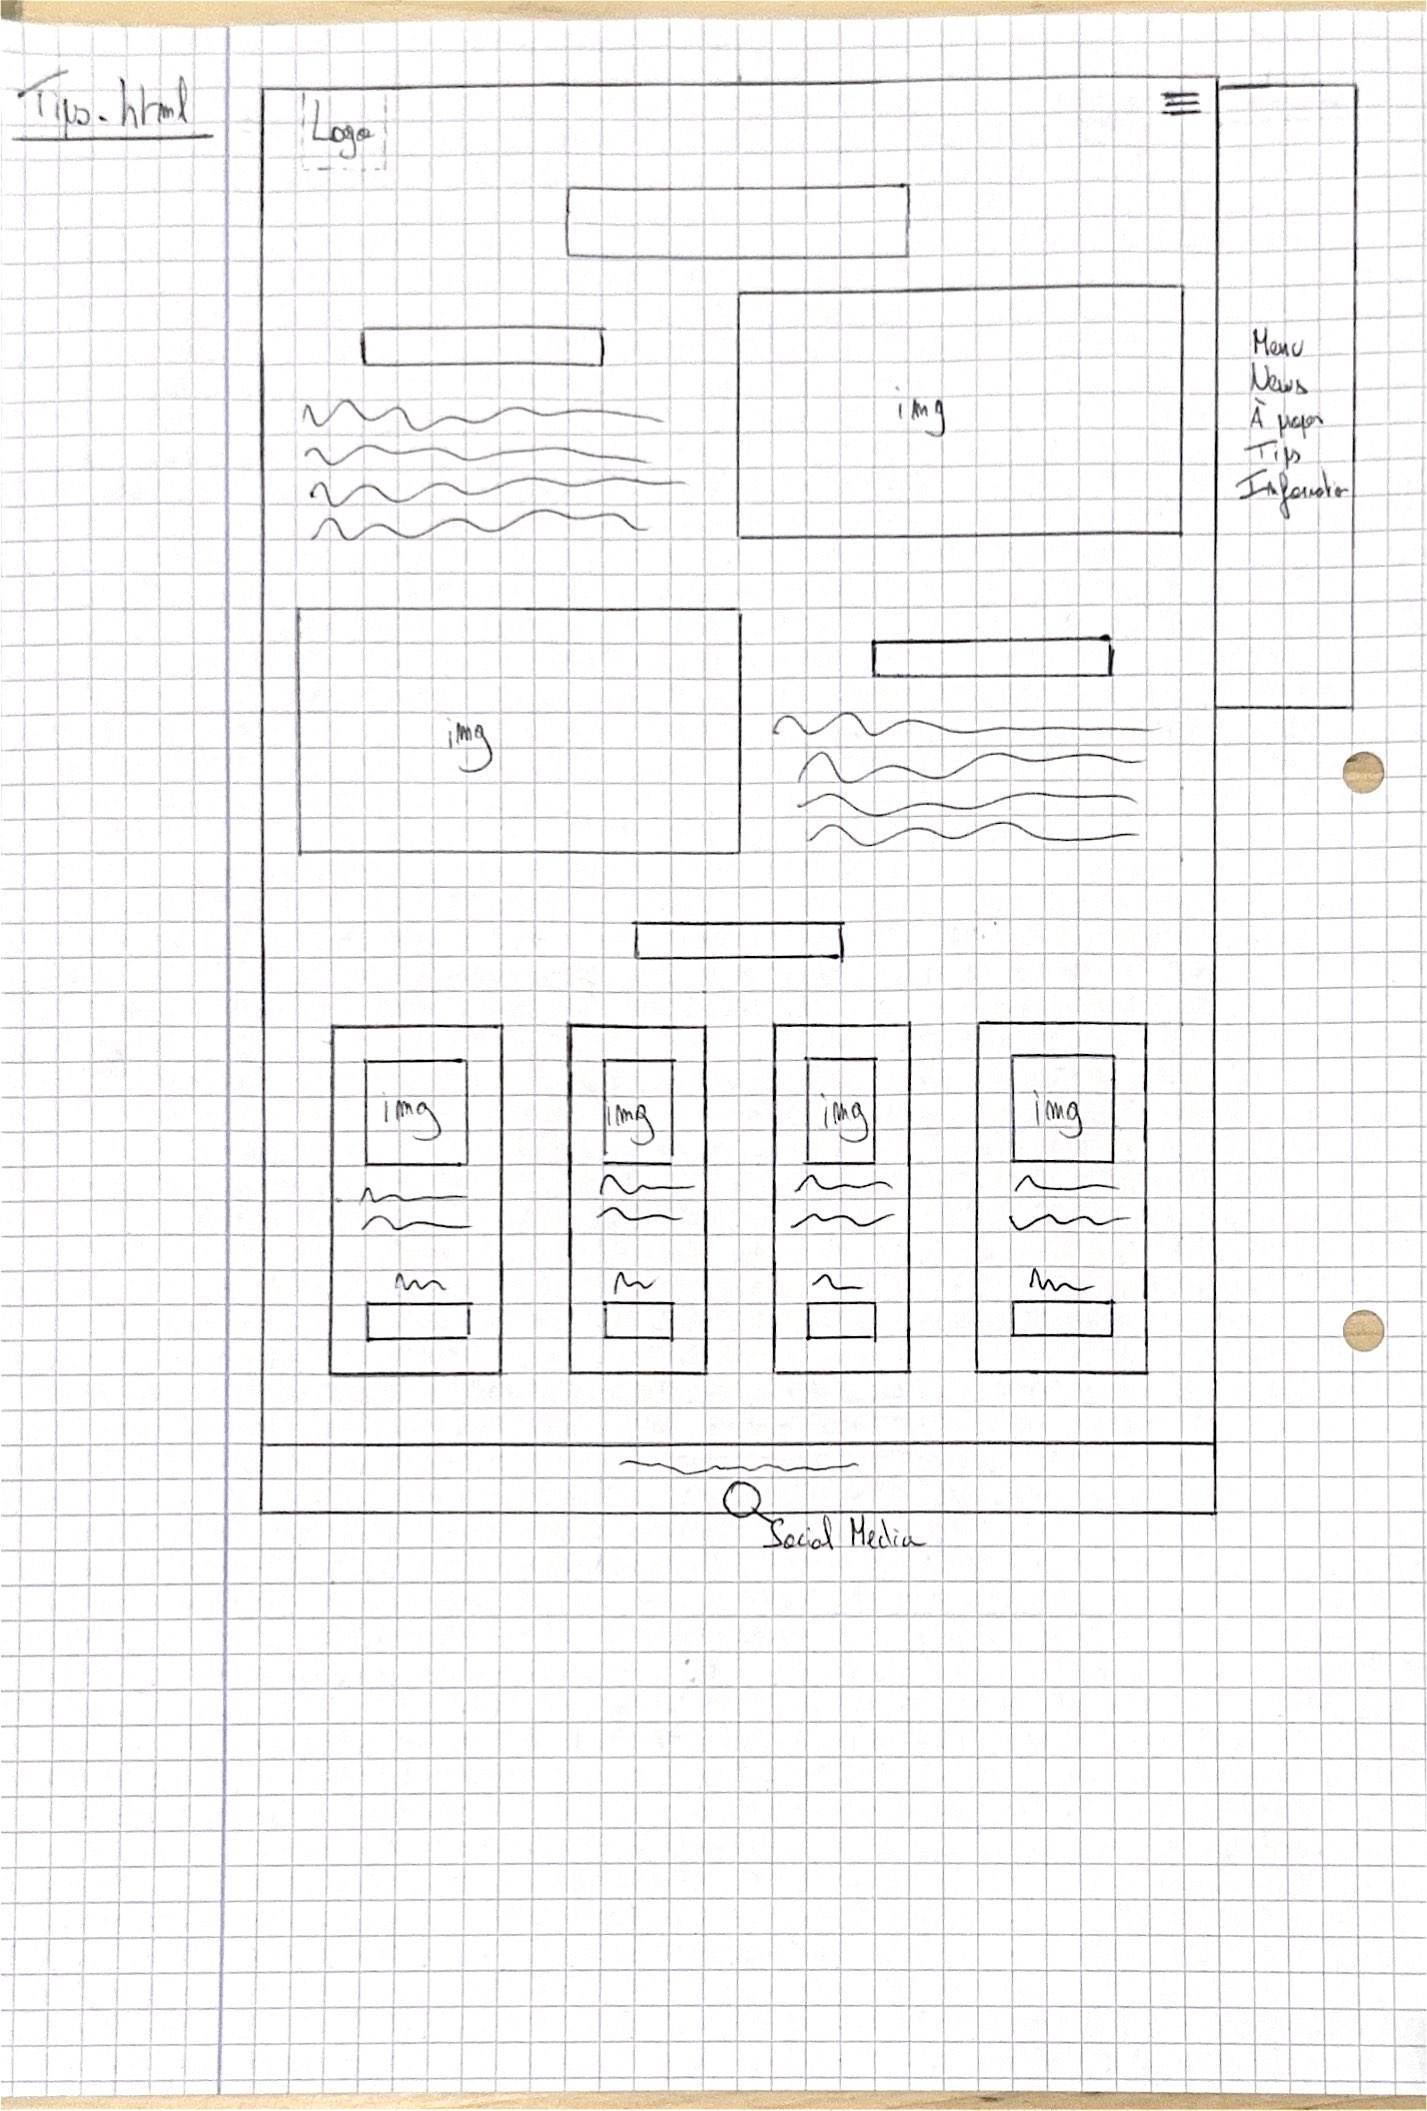 Tips.html
Logo
img
Menu
News
À propos
Tips
Information
img
img
img
img
img
Social Media